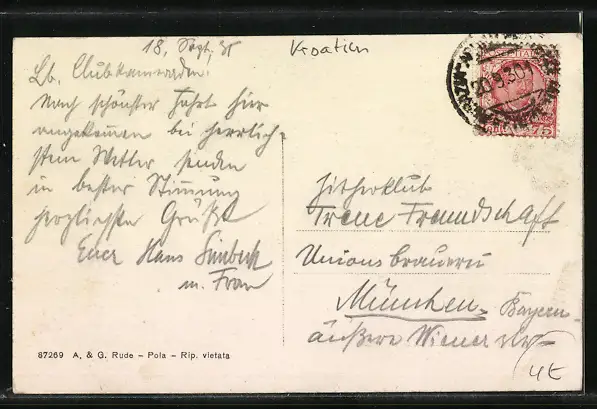 18. Sept. 30
Kroatien
20.9.30
Lb. Clubkameraden!
Nach schönster Fahrt hier
angekommen bei herrlich-
stem Wetter senden
in bester Stimmung
herzlichste Grüße
Euer Hans
m. Frau
Zitherclub
Treue Freundschaft
Unionsbrauerei
München, Bayern
äußere Wiener
87269 A. & G. Rude – Pola – Rip. vietata
4E